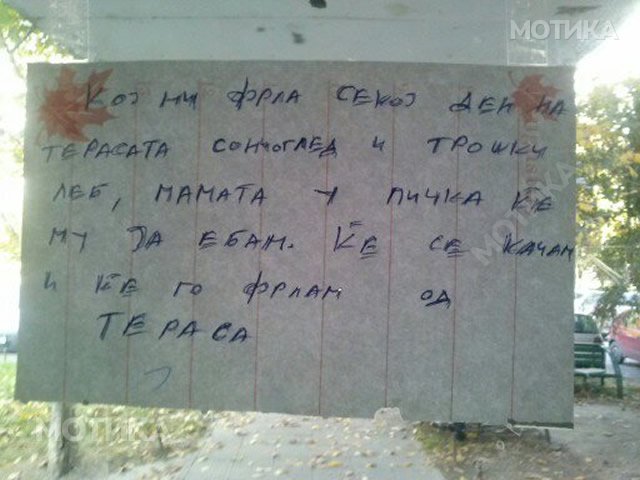 МОТИКА
Кој ни фрла секој ден на
терасата сончоглед и трошки
леб, мамата у пичка ќе
му ја ебам. Ќе се качам
и ќе го фрлам од
тераса
МОТИКА
МОТИКА